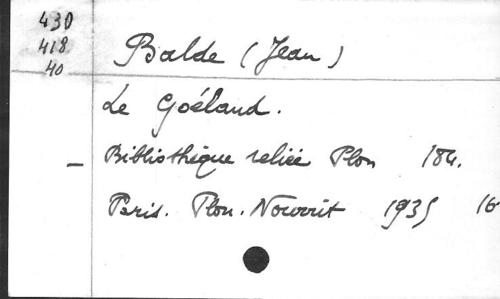 430
418
40
Balde (Jean)
Le Goéland.
- Bibliothèque reliée Plon 184.
Paris. Plon. Nourrit 1935 16